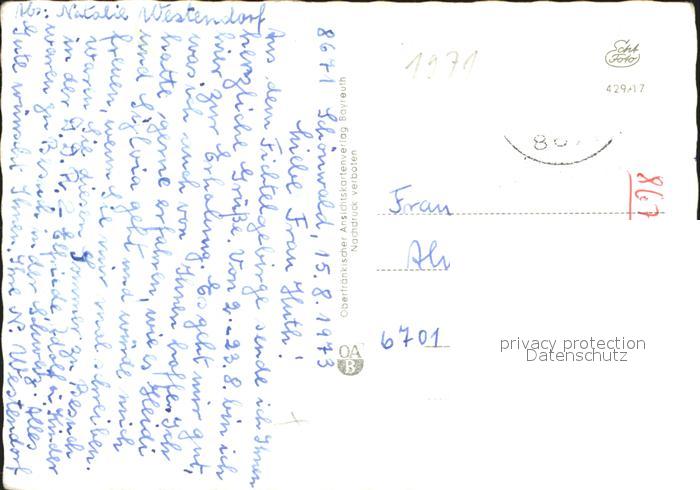 Abs: Natalie Westendorf
8671 Schönwald, 15.8.1973
Liebe Frau Huth!
Aus dem Fichtelgebirge sende ich Ihnen
herzliche Grüße. Von 2.-23.8. bin ich
hier zur Erholung. Es geht mir gut,
was ich auch von Ihnen hoffe. Ich
hatte gerne erfahren, wie es Heidi
und Sylvia geht und würde mich
freuen, wenn Sie mir mal schreiben.
Waren Sie diesen Sommer zu Besuch
in der D.D.R.? Elfriede, Adolf u. Kinder
waren zu Besuch in der Schweiz. Alles
Gute wünscht Ihnen Ihre N. Westendorf
Oberfränkischer Ansichtskartenverlag Bayreuth
Nachdruck verboten
OA
B
1971
Echt
Foto
429/17
80
867
Frau
Ah
6701
privacy protection
Datenschutz